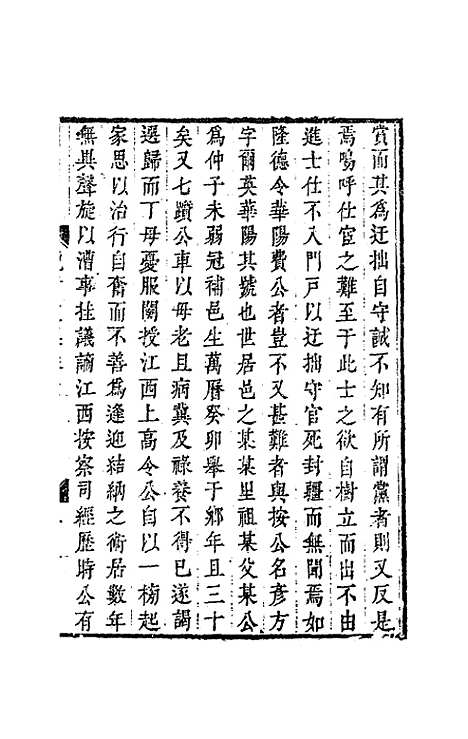 賞而其為迂拙自守誠不知有所謂黨者則又反是
焉嗚呼仕宦之難至于此士之欲自樹立而出不由
進士仕不入門戶以迂拙守官死封疆而無聞焉如
隆德令華陽費公者豈不又甚難者與按公名彥方
字爾英華陽其號也世居邑之某某里祖某父某公
為仲子未弱冠補邑生萬曆癸卯舉于鄉年且三十
矣又七躓公車以母老且病冀及祿養不得已遂謁
選歸而丁母憂服闋授江西上高令公自以一榜起
家思以治行自奮而不善為逢迎結納之術居數年
無異聲旋以漕事挂議謫江西按察司經歷時公有